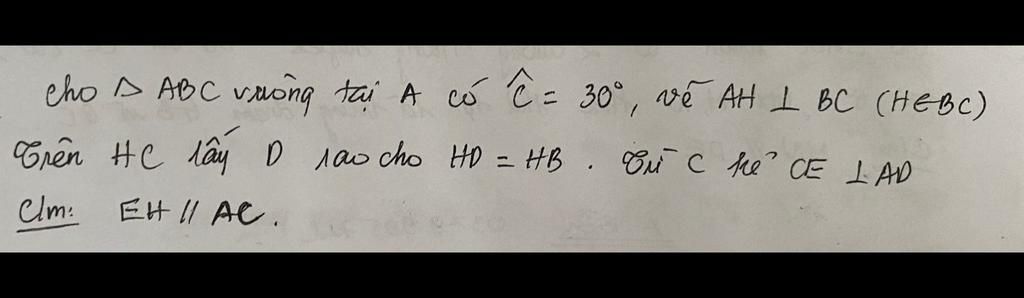 cho △ ABC vuông tại A có Ĉ = 30°, vẽ AH ⊥ BC (H∈BC)
Trên HC lấy D sao cho HD = HB. Từ C kẻ CE ⊥ AD
Clm: EH // AC.